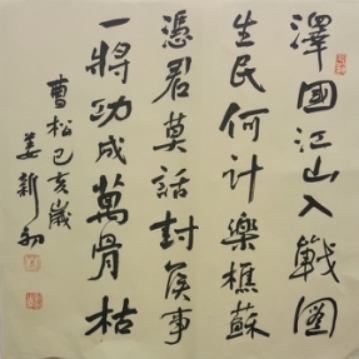 澤國江山入戰圖
生民何計樂樵蘇
憑君莫話封侯事
一將功成萬骨枯
曹松己亥歲
姜新初